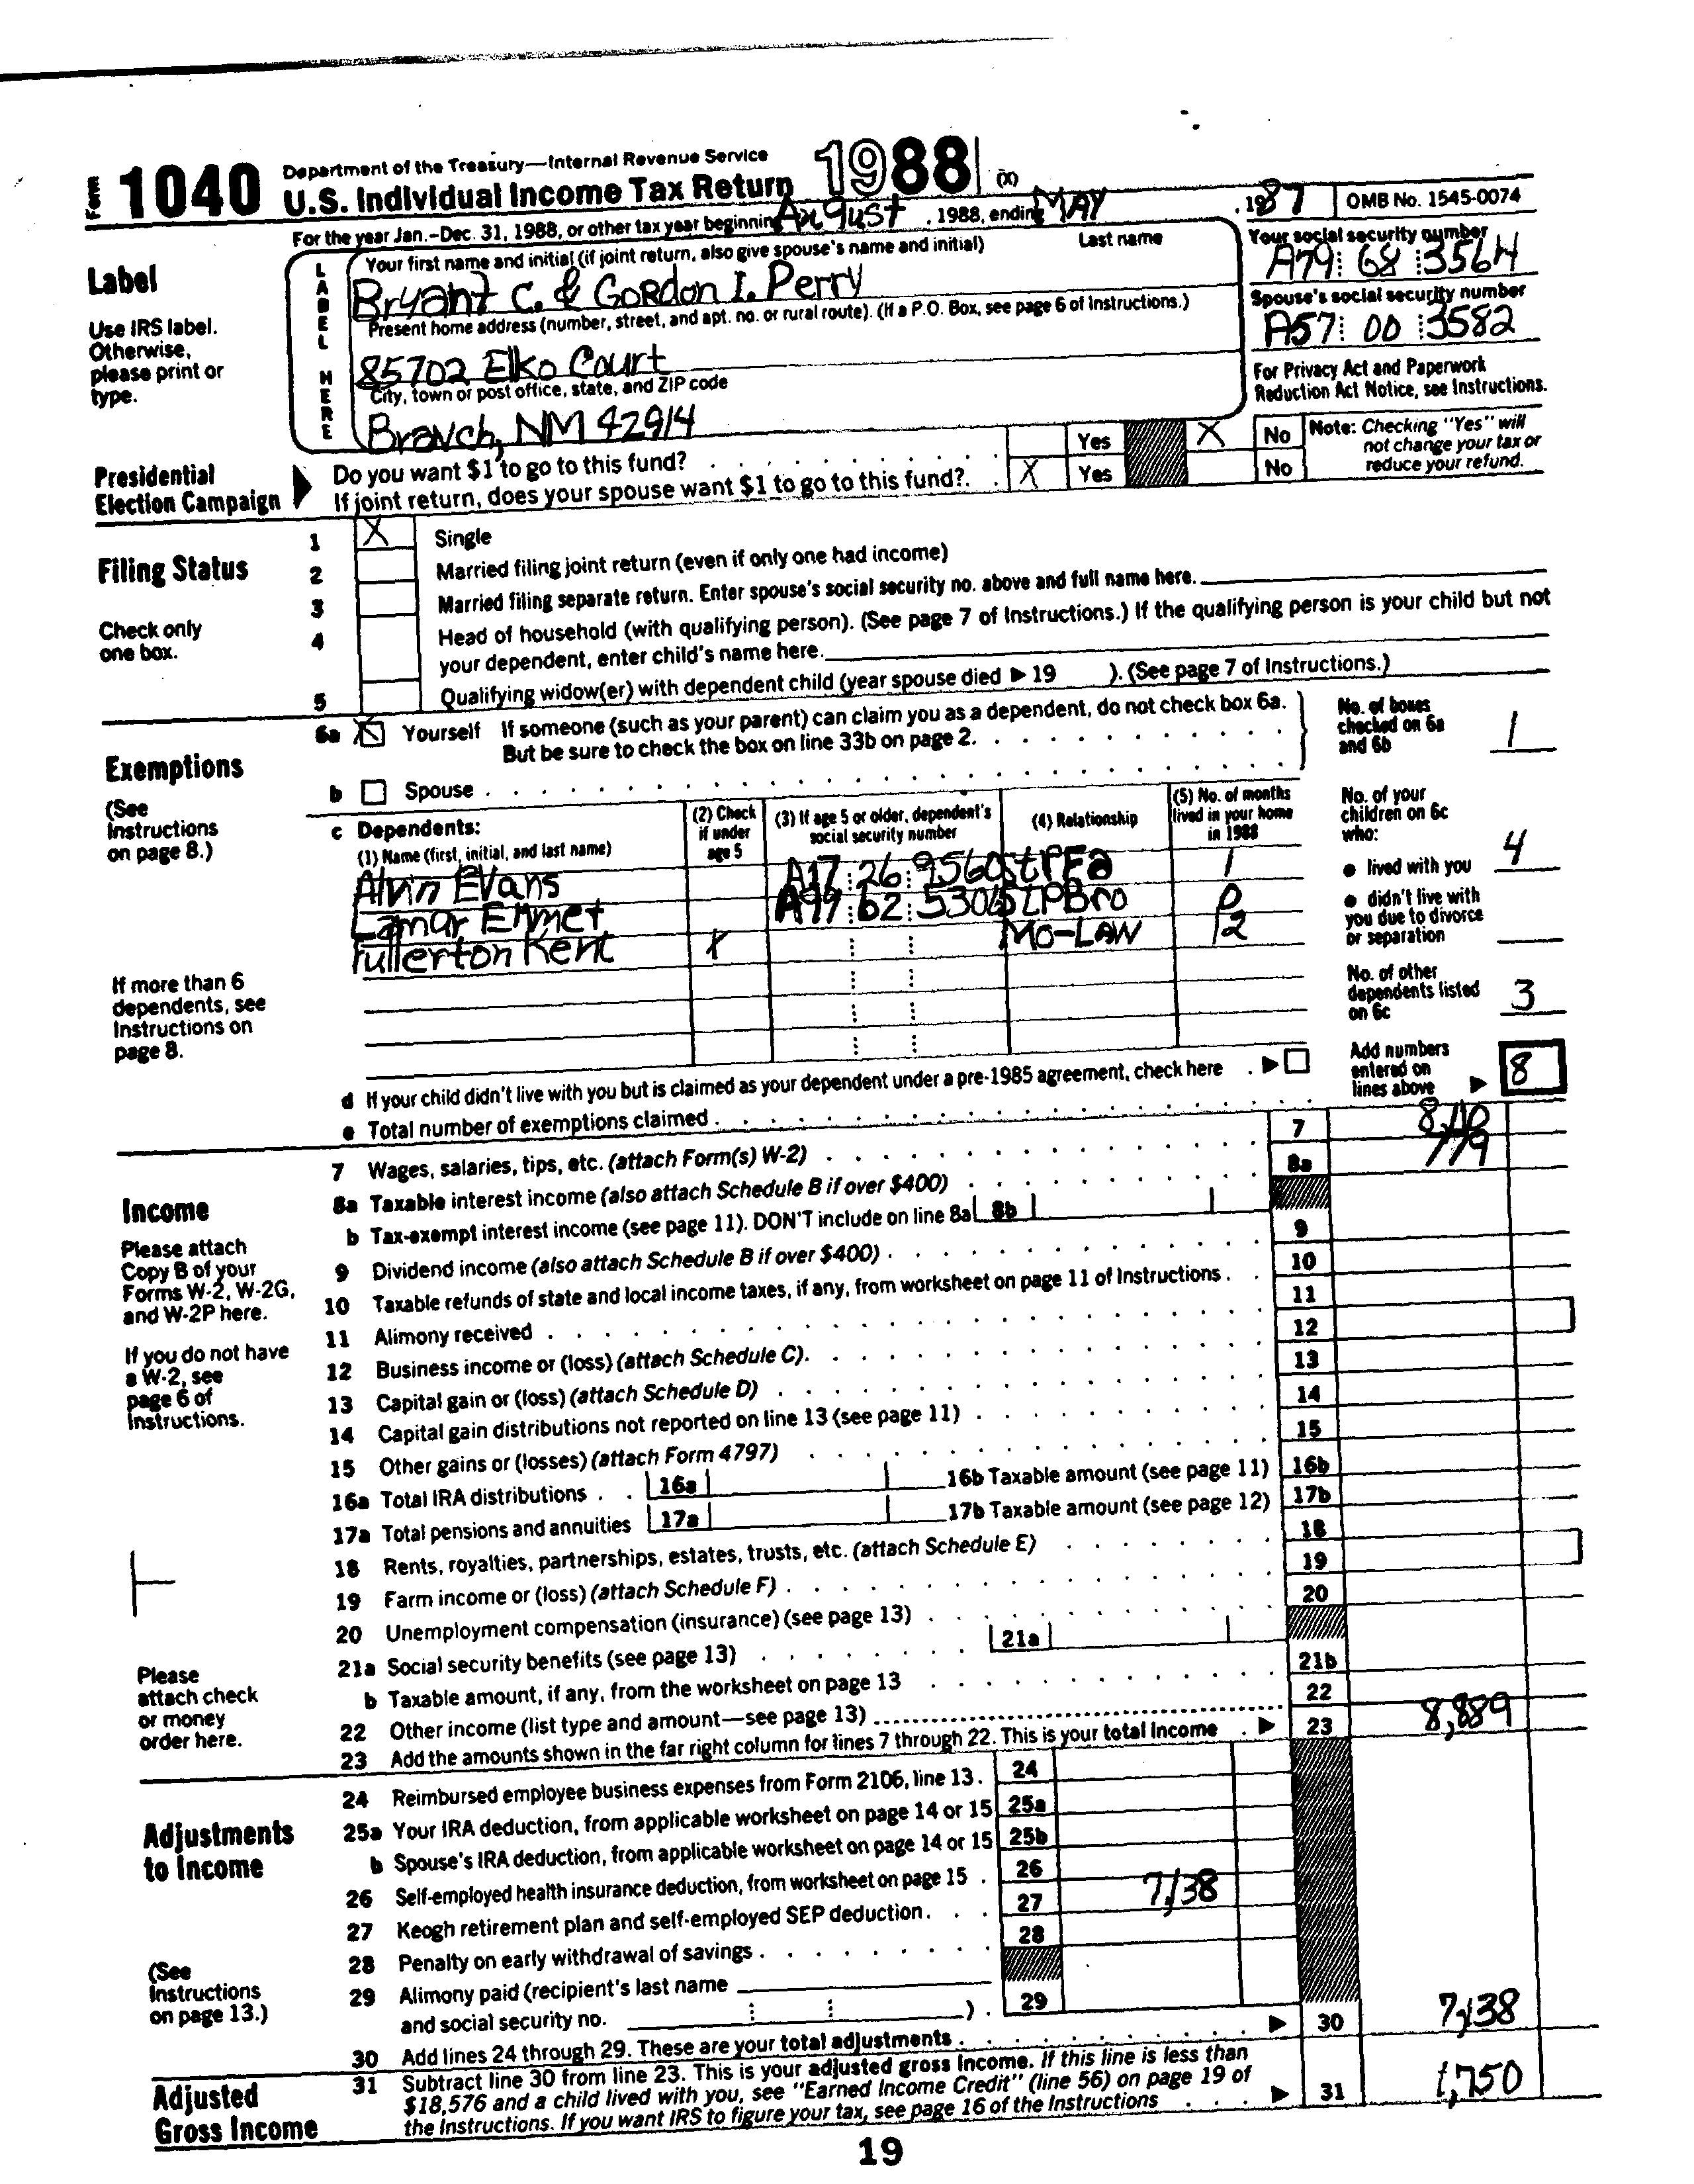 Form 1040 Department of the Treasury—Internal Revenue Service
U.S. Individual Income Tax Return 1988 (X)
For the year Jan.–Dec. 31, 1988, or other tax year beginning August , 1988, ending MAY , 1987 OMB No. 1545-0074
Label
Use IRS label.
Otherwise,
please print or
type.
LABEL HERE
Your first name and initial (if joint return, also give spouse's name and initial) Last name
Bryant C. & Gordon I. Perry
Present home address (number, street, and apt. no. or rural route). (If a P.O. Box, see page 6 of Instructions.)
85702 Elko Court
City, town or post office, state, and ZIP code
Branch, NM 42914
Your social security number
A79 68 3564
Spouse's social security number
A57 00 3582
For Privacy Act and Paperwork
Reduction Act Notice, see Instructions.
Presidential
Election Campaign
Do you want $1 to go to this fund? . . . . . . . . Yes X No
If joint return, does your spouse want $1 to go to this fund? . . X Yes No
Note: Checking "Yes" will
not change your tax or
reduce your refund.
Filing Status
Check only
one box.
1 X Single
2 Married filing joint return (even if only one had income)
3 Married filing separate return. Enter spouse's social security no. above and full name here.
4 Head of household (with qualifying person). (See page 7 of Instructions.) If the qualifying person is your child but not
your dependent, enter child's name here.
5 Qualifying widow(er) with dependent child (year spouse died ▶ 19 ). (See page 7 of Instructions.)
Exemptions
(See
Instructions
on page 8.)
If more than 6
dependents, see
Instructions on
page 8.
6a X Yourself If someone (such as your parent) can claim you as a dependent, do not check box 6a.
But be sure to check the box on line 33b on page 2.
b Spouse
c Dependents:
(1) Name (first, initial, and last name)
(2) Check
if under
age 5
(3) If age 5 or older, dependent's
social security number
(4) Relationship
(5) No. of months
lived in your home
in 1988
Alvin Evans A17 26 9560 StPFa 1
Lamar Emmet A99 62 5306 StPBro
Fullerton Kent X Mo-LAW 12
No. of boxes
checked on 6a
and 6b
1
No. of your
children on 6c
who:
● lived with you 4
● didn't live with
you due to divorce
or separation
No. of other
dependents listed
on 6c
3
Add numbers
entered on
lines above ▶ 8
d If your child didn't live with you but is claimed as your dependent under a pre-1985 agreement, check here . ▶
e Total number of exemptions claimed
Income
Please attach
Copy B of your
Forms W-2, W-2G,
and W-2P here.
If you do not have
a W-2, see
page 6 of
Instructions.
Please
attach check
or money
order here.
7 Wages, salaries, tips, etc. (attach Form(s) W-2) 7 8,110
8a Taxable interest income (also attach Schedule B if over $400) 8a 779
b Tax-exempt interest income (see page 11). DON'T include on line 8a 8b
9 Dividend income (also attach Schedule B if over $400) 9
10 Taxable refunds of state and local income taxes, if any, from worksheet on page 11 of Instructions 10
11 Alimony received 11
12 Business income or (loss) (attach Schedule C) 12
13 Capital gain or (loss) (attach Schedule D) 13
14 Capital gain distributions not reported on line 13 (see page 11) 14
15 Other gains or (losses) (attach Form 4797) 15
16a Total IRA distributions 16a 16b Taxable amount (see page 11) 16b
17a Total pensions and annuities 17a 17b Taxable amount (see page 12) 17b
18 Rents, royalties, partnerships, estates, trusts, etc. (attach Schedule E) 18
19 Farm income or (loss) (attach Schedule F) 19
20 Unemployment compensation (insurance) (see page 13) 20
21a Social security benefits (see page 13) 21a
b Taxable amount, if any, from the worksheet on page 13 21b
22 Other income (list type and amount—see page 13) 22
23 Add the amounts shown in the far right column for lines 7 through 22. This is your total income ▶ 23 8,889
Adjustments
to Income
(See
Instructions
on page 13.)
24 Reimbursed employee business expenses from Form 2106, line 13 24
25a Your IRA deduction, from applicable worksheet on page 14 or 15 25a
b Spouse's IRA deduction, from applicable worksheet on page 14 or 15 25b
26 Self-employed health insurance deduction, from worksheet on page 15 26
27 Keogh retirement plan and self-employed SEP deduction 27 7,138
28 Penalty on early withdrawal of savings 28
29 Alimony paid (recipient's last name
and social security no. ) 29
30 Add lines 24 through 29. These are your total adjustments ▶ 30 7,138
Adjusted
Gross Income
31 Subtract line 30 from line 23. This is your adjusted gross income. If this line is less than
$18,576 and a child lived with you, see "Earned Income Credit" (line 56) on page 19 of
the Instructions. If you want IRS to figure your tax, see page 16 of the Instructions ▶ 31 1,750
19